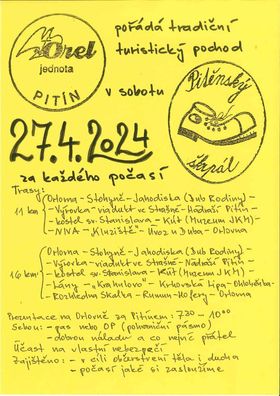 Orel
jednota
PITÍN
pořádá tradiční
turistický pochod
v sobotu
Pitěnský
škrpál
27.4.2024
za každého počasí
Trasy:
Orlovna - Stohyně - Jahodiska (Dub Rodiny) -
- Výrovka - viadukt ve Strašné - Nádraží Pitín -
11 km
- kostel sv. Stanislava - Kút (Muzeum JKH) -
- NIVA - Úvoz u Duba - Orlovna
Orlovna - Stohyně - Jahodiska (Dub Rodiny) -
- Výrovka - viadukt ve Strašné - Nádraží Pitín -
16 km
- kostel sv. Stanislava - Kút (Muzeum JKH) -
- Lány - Krhovská Lípa -
- Rozhledna Skalka - Hofery - Orlovna
Prezentace na Orlovně za Pitínem: 7.30 - 10.00
Sebou: - pas nebo OP (pohraniční pásmo)
- dobrou náladu a co nejvíc přátel
Účast na vlastní nebezpečí
Zajištěno: - v cíli občerstvení těla i ducha
- počasí jaké si zasloužíme